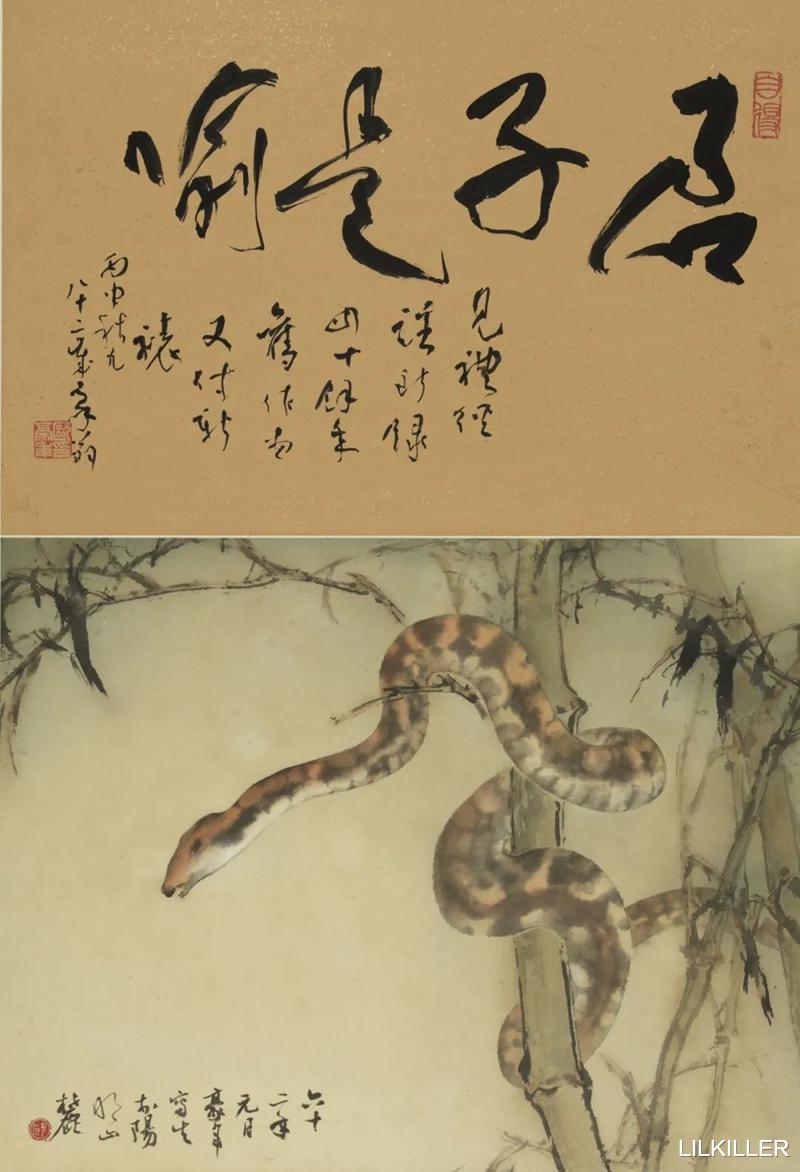 自得
君子是喻
見禮經
錄
四十餘年
舊作
又付新
丙申秋九
八十二歲豪翁
六十
二年
元月
豪年
寫生
於陽
明山
麓
LILKILLER